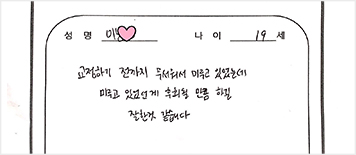 성 명 미 나 이 19 세
교정하기 전까지 무서워서 미루고 있었는데
미루고 있었던게 후회될 만큼 하길
잘한것 같습니다